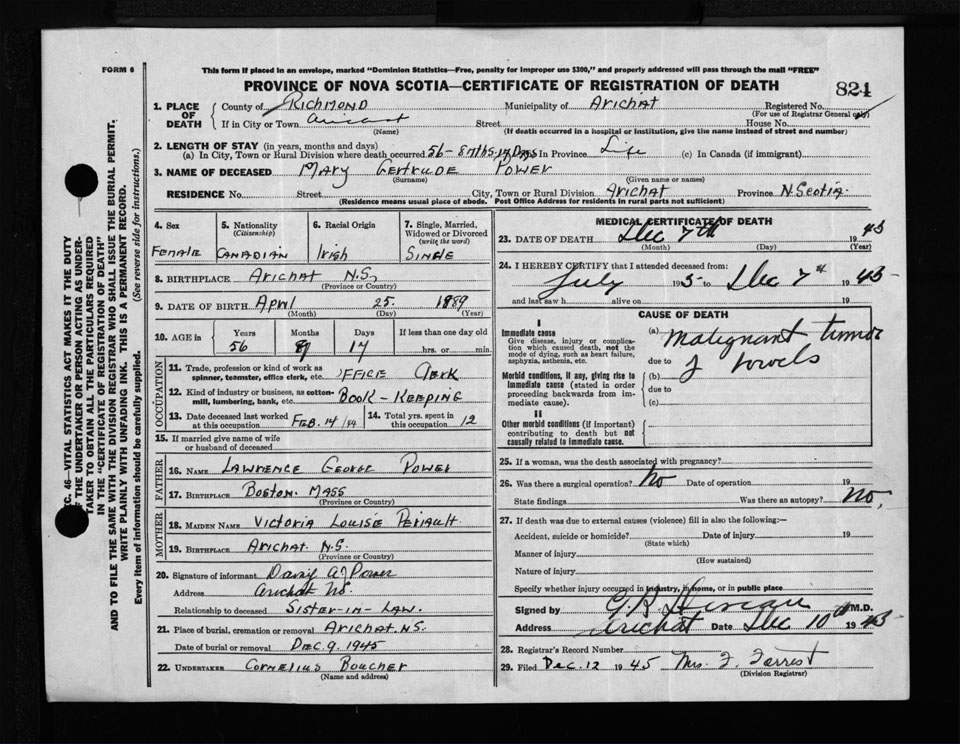 FORM 6
This form if placed in an envelope, marked "Dominion Statistics—Free, penalty for improper use $300," and properly addressed will pass through the mail "FREE"
PROVINCE OF NOVA SCOTIA—CERTIFICATE OF REGISTRATION OF DEATH
824
1. PLACE OF DEATH
County of Richmond Municipality of Arichat Registered No.
(For use of Registrar General only)
If in City or Town Arichat Street House No.
(Name) (If death occurred in a hospital or institution, give the name instead of street and number)
2. LENGTH OF STAY (in years, months and days)
(a) In City, Town or Rural Division where death occurred 56 - 8 mths. 17 Days In Province Life (c) In Canada (if immigrant)
3. NAME OF DECEASED Mary Gertrude Power
(Surname) (Given name or names)
RESIDENCE No. Street City, Town or Rural Division Arichat Province N. Scotia
(Residence means usual place of abode. Post Office Address for residents in rural parts not sufficient)
4. Sex
Female
5. Nationality
(Citizenship)
Canadian
6. Racial Origin
Irish
7. Single, Married, Widowed or Divorced
(write the word)
Single
8. BIRTHPLACE Arichat N.S.
(Province or Country)
9. DATE OF BIRTH April 25. 1889
(Month) (Day) (Year)
10. AGE in
Years Months Days If less than one day old
56 17 hrs. or min.
OCCUPATION
11. Trade, profession or kind of work as
spinner, teamster, office clerk, etc. Office Clerk
12. Kind of industry or business, as cotton-
mill, lumbering, bank, etc. Book-Keeping
13. Date deceased last worked
at this occupation Feb. 14/44
14. Total yrs. spent in
this occupation 12
15. If married give name of wife
or husband of deceased
FATHER
16. NAME Lawrence George Power
17. BIRTHPLACE Boston. Mass
(Province or Country)
MOTHER
18. MAIDEN NAME Victoria Louise
19. BIRTHPLACE Arichat N.S.
(Province or Country)
20. Signature of informant Power
Address Arichat N.S.
Relationship to deceased Sister-in-Law.
21. Place of burial, cremation or removal Arichat. N.S.
Date of burial or removal Dec. 9. 1945
22. UNDERTAKER Cornelius Boucher
(Name and address)
MEDICAL CERTIFICATE OF DEATH
23. DATE OF DEATH Dec 7th 1945
(Month) (Day) (Year)
24. I HEREBY CERTIFY that I attended deceased from:
July 19 to Dec 7th 1945
and last saw h alive on 19
CAUSE OF DEATH
I
Immediate cause
Give disease, injury or complica-
tion which caused death, not the
mode of dying, such as heart failure,
asphyxia, asthenia, etc.
(a) Malignant tumor
due to of bowels
Morbid conditions, if any, giving rise to
immediate cause (stated in order
proceeding backwards from im-
mediate cause).
(b)
due to
(c)
II
Other morbid conditions (if important)
contributing to death but not
causally related to immediate cause.
25. If a woman, was the death associated with pregnancy?
26. Was there a surgical operation? No Date of operation 19
State findings Was there an autopsy? No.
27. If death was due to external causes (violence) fill in also the following:—
Accident, suicide or homicide? Date of injury 19
(State which)
Manner of injury
(How sustained)
Nature of injury
Specify whether injury occurred in industry, in home, or in public place
Signed by M.D.
Address Arichat Date Dec 10th 1945
28. Registrar's Record Number
29. Filed Dec. 12 1945 Mrs.
(Division Registrar)
EC. 46—VITAL STATISTICS ACT MAKES IT THE DUTY
OF THE UNDERTAKER OR PERSON ACTING AS UNDER-
TAKER TO OBTAIN ALL THE PARTICULARS REQUIRED
IN THE "CERTIFICATE OF REGISTRATION OF DEATH"
AND TO FILE THE SAME WITH THE DIVISION REGISTRAR WHO SHALL ISSUE THE BURIAL PERMIT.
WRITE PLAINLY WITH UNFADING INK. THIS IS A PERMANENT RECORD.
Every item of information should be carefully supplied. (See reverse side for instructions.)